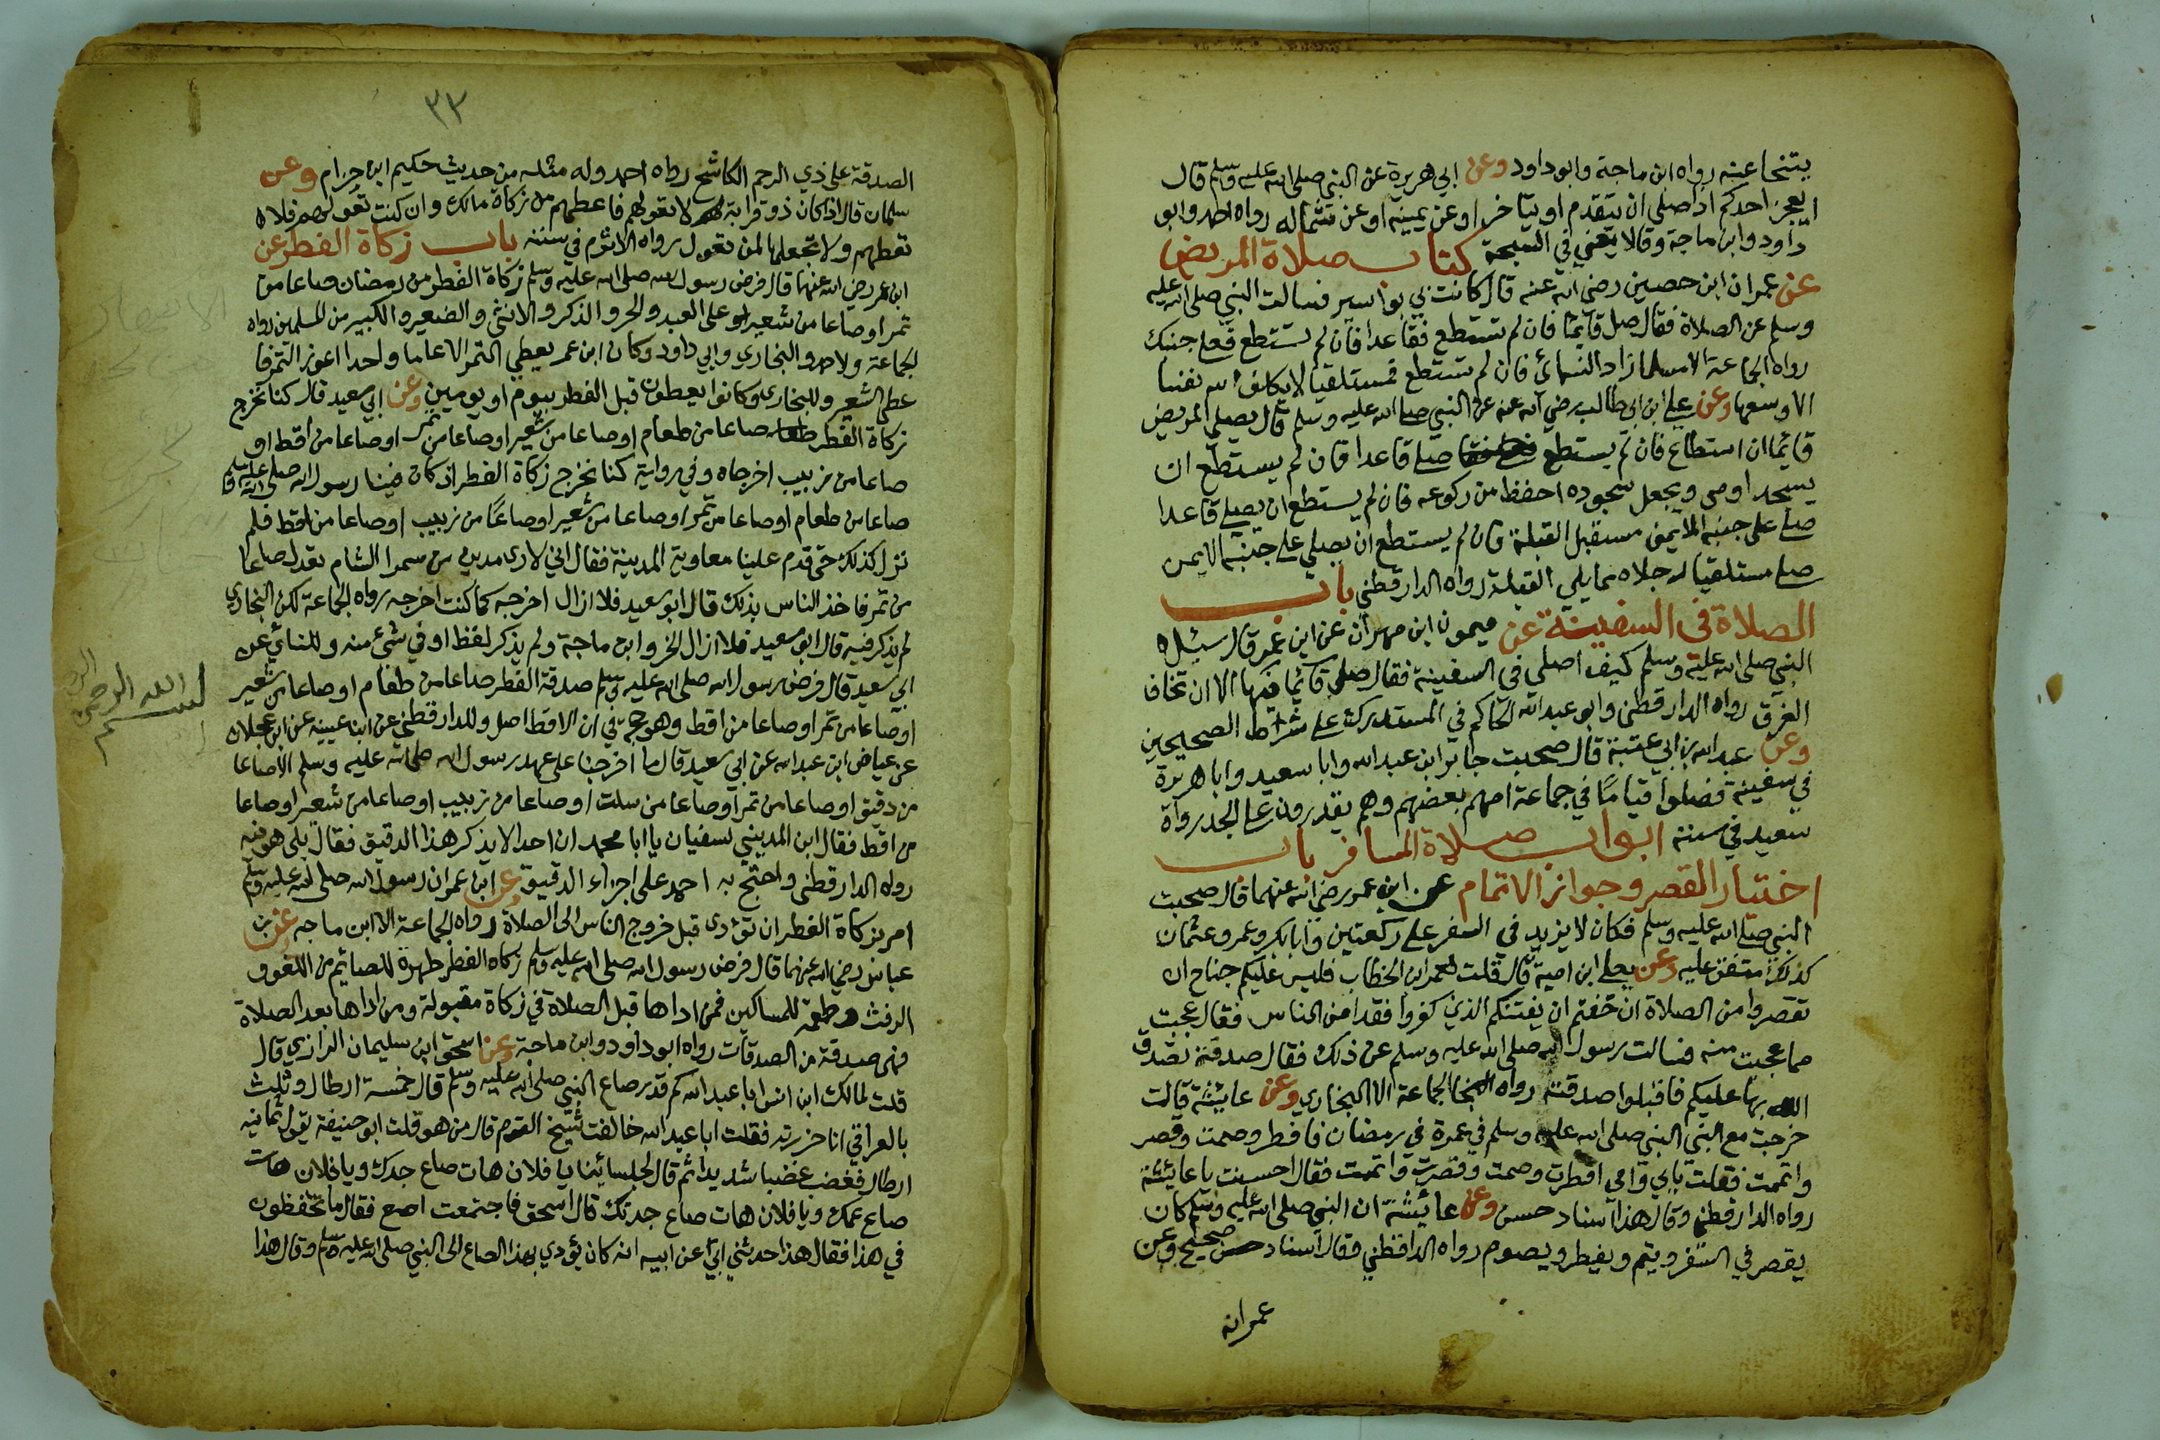 يتنحا عنه رواه ابن ماجة وابو داود وعن ابي هريرة عن النبي صلى الله عليه وسلم قال
ايعجز احدكم اذا صلى ان يتقدم او يتأخر او عن يمينه او عن شماله رواه احمد وابو
داود وابن ماجة وقالا يعني في السبحة كتاب صلاة المريض
عن عمران ابن حصين رضي الله عنه قال كانت بي بواسير فسالت النبي صلى الله عليه
وسلم عن الصلاة فقال صل قائما فان لم تستطع فقاعدا فان لم تستطع فعلى جنبك
رواه الجماعة الا مسلما زاد النسائي فان لم تستطع فمستلقيا لا يكلف الله نفسا
الا وسعها وعن علي ابن ابي طالب رضي الله عنه عن النبي صلى الله عليه وسلم قال يصلي المريض
قائما ان استطاع فان لم يستطع صلى قاعدا فان لم يستطع ان
يسجد اومى ويجعل سجوده احفظ من ركوعه فان لم يستطع ان يصلي قاعدا
صلى على جنبه الايمن مستقبل القبلة فان لم يستطع ان يصلي على جنبه الايمن
صلى مستلقيا رجلاه مما يلي القبلة رواه الدارقطني باب
الصلاة في السفينة عن ميمون ابن مهران عن ابن عمر قال سئل
النبي صلى الله عليه وسلم كيف اصلي في السفينة فقال صلي قائما فيها الا ان تخاف
الغرق رواه الدارقطني وابو عبدالله الحاكم في المستدرك على شرط الصحيحين
وعن عبدالله بن ابي عتبة قال صحبت جابر ابن عبدالله وابا سعيد وابا هريرة
في سفينة فصلوا قياما في جماعة امهم بعضهم وهم يقدرون على الجد رواه
سعيد في سننه ابواب صلاة المسافر باب
اختيار القصر وجواز الاتمام عن ابن عمر رضي الله عنهما قال صحبت
النبي صلى الله عليه وسلم فكان لا يزيد في السفر على ركعتين وابابكر وعمر وعثمان
كذلك متفق عليه وعن يعلى ابن امية قال قلت لعمر ابن الخطاب فليس عليكم جناح ان
تقصروا من الصلاة ان خفتم ان يفتنكم الذين كفروا فقد امن الناس فقال عجبت
مما عجبت منه فسالت رسول الله صلى الله عليه وسلم عن ذلك فقال صدقة تصدق
الله بها عليكم فاقبلوا صدقته رواه الجماعة الا البخاري وعن عايشة قالت
خرجت مع النبي النبي صلى الله عليه وسلم في عمرة في رمضان فافطر وصمت وقصر
واتممت فقلت بابي وامي افطرت وصمت وقصرت واتممت فقال احسنت يا عايشة
رواه الدارقطني وقال هذا اسناد حسن وعن عائشة ان النبي صلى الله عليه وسلم كان
يقصر في السفر ويتم ويفطر ويصوم رواه الدارقطني وقال اسناد صحيح وعن
عمران
٣٣
الصدقة على ذي الرحم الكاشح رواه احمد وله مثله من حديث حكيم ابن حزام وعن
سلمان قال اذا كان ذو قرابة لا تعولهم فاعطهم من زكاة مالك وان كنت تعولهم فلا
تعطهم ولا تجعلها لمن تعول رواه الاثرم في سننه باب زكاة الفطر عن
ابن عمر رضي الله عنهما قال فرض رسول الله صلى الله عليه وسلم زكاة الفطر من رمضان صاعا من
تمر او صاعا من شعير على العبد والحر والذكر والانثى والصغير والكبير من المسلمين رواه
الجماعة ولاحمد والبخاري وابي داود وكان ابن عمر يعطي التمر الا عاما واحدا اعوز التمر فا
عطى الشعير وللبخاري وكانوا يعطون قبل الفطر بيوم او يومين وعن ابي سعيد قال كنا نخرج
زكاة الفطر صاعا من طعام او صاعا من شعير او صاعا من تمر او صاعا من اقط او
صاعا من زبيب اخرجاه وفي رواية كنا نخرج زكاة الفطر اذ كان فينا رسول الله صلى الله عليه وسلم
صاعا من طعام او صاعا من تمر او صاعا من شعير او صاعا من زبيب او صاعا من اقط فلم
نزل كذلك حتى قدم علينا معاوية المدينة فقال اني لارى مدين من سمرا الشام تعدل صاعا
من تمر فاخذ الناس بذلك قال ابو سعيد فلا ازال اخرجه كما كنت اخرجه رواه الجماعة لكن البخاري
لم يذكر فيه قال ابو سعيد فلا ازال الخ وابن ماجة ولم يذكر لفظ او في شيء منه وللنسائي عن
ابي سعيد قال فرض رسول الله صلى الله عليه وسلم صدقة الفطر صاعا من طعام او صاعا من شعير
او صاعا من تمر او صاعا من اقط وهو حجة في ان الاقط اصل وللدارقطني عن ابن عيينة عن ابن عجلان
عن عياض ابن عبدالله عن ابي سعيد قال ما اخرجنا على عهد رسول الله صلى الله عليه وسلم الا صاعا
من دقيق او صاعا من تمر او صاعا من سلت او صاعا من زبيب او صاعا من شعير او صاعا
من اقط فقال ابن المديني لسفيان يا ابا محمد ان احدا لا يذكر هذا الدقيق فقال بلى هو فيه
رواه الدارقطني واحتج به احمد على اجزاء الدقيق عن ابن عمر ان رسول الله صلى الله عليه وسلم
امر بزكاة الفطر ان تؤدى قبل خروج الناس الى الصلاة رواه الجماعة الا ابن ماجه عن بن
عباس رضي الله عنهما قال فرض رسول الله صلى الله عليه وسلم زكاه الفطر طهرة للصائم من اللغو و
الرفث وطعمة للمساكين فمن اداها قبل الصلاة في زكاة مقبولة ومن اداها بعد الصلاة
فهي صدقة من الصدقات رواه ابو داود وابن ماجة وعن اسحق ابن سليمان الرازي قال
قلت لمالك ابن انس ابا عبدالله كم قدر صاع النبي صلى الله عليه وسلم قال خمسة ارطال وثلث
بالعراقي انا حزرته فقلت ابا عبدالله خالفت شيخ القوم قال من هو قلت ابو حنيفة يقول ثمانيه
ارطال فغضب غضبا شديدا ثم قال لجلسائنا يا فلان هات صاع جدك ويا فلان هات
صاع عمك ويا فلان هات صاع جدتك قال اسحق فاجتمعت اصع فقال ما تحفظون
في هذا فقال هذا حدثني ابي عن ابيه انه كان يؤدي بهذا الصاع الى النبي صلى الله عليه وسلم وقال هذا
بسم الله الرحمن